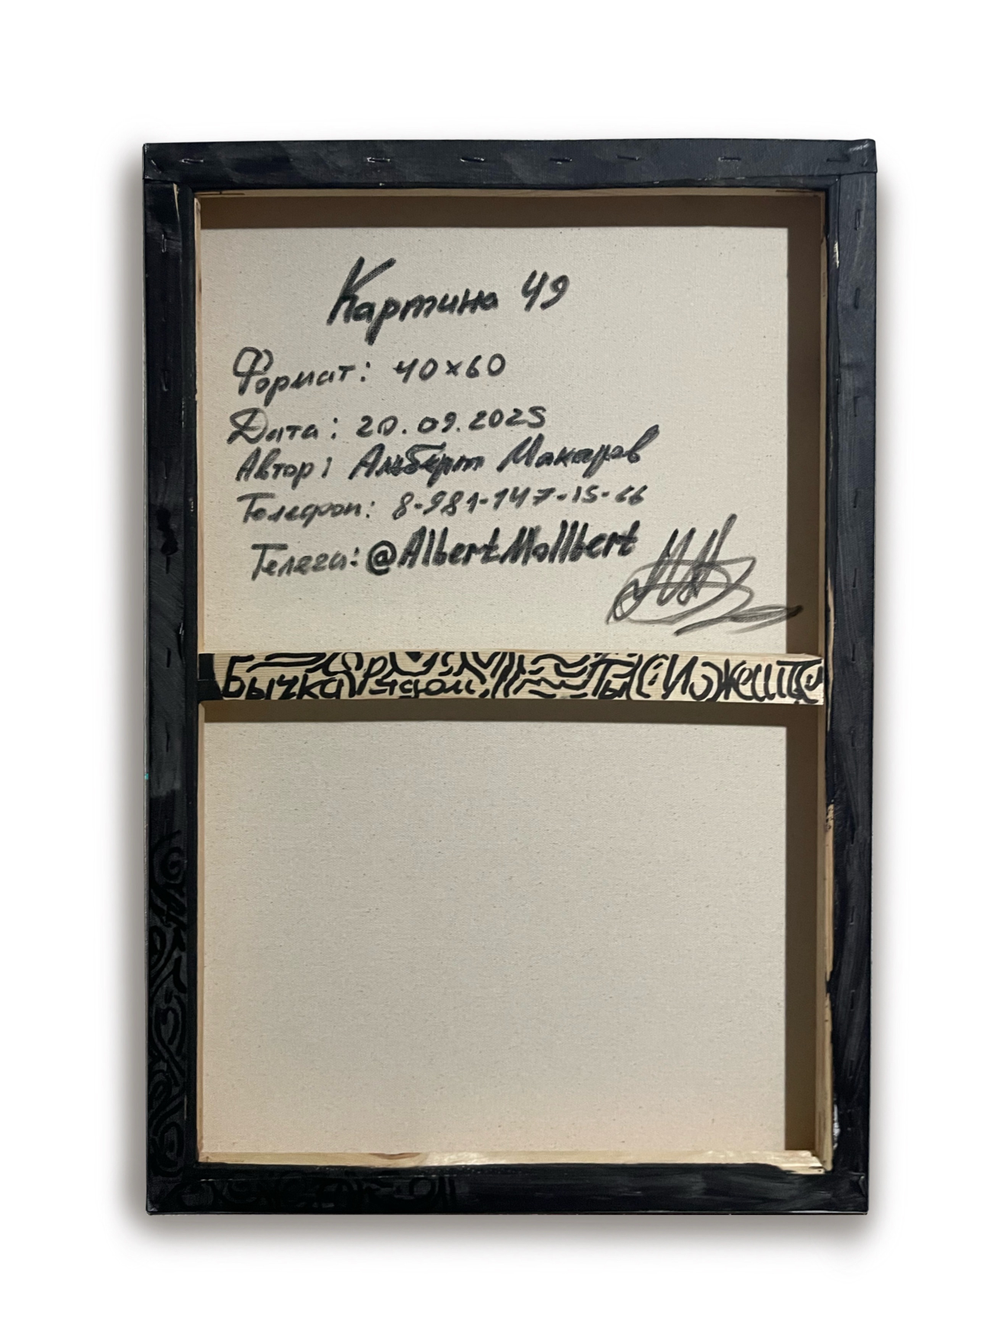 Картина 49
Формат: 40x60
Дата: 20.09.2025
Автор: Альберт Макаров
Телефон: 8-981-147-15-66
Телега: @AlbertMallbert
Бычка Рядом Ты